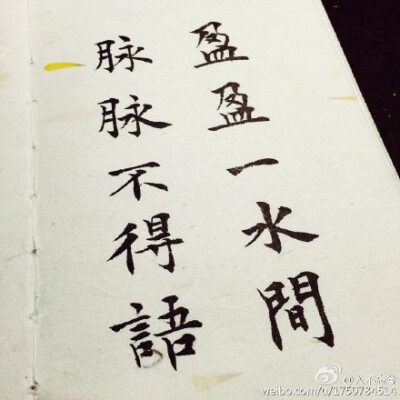 盈盈一水間
脉脉不得語
weibo.com/u/1750784514